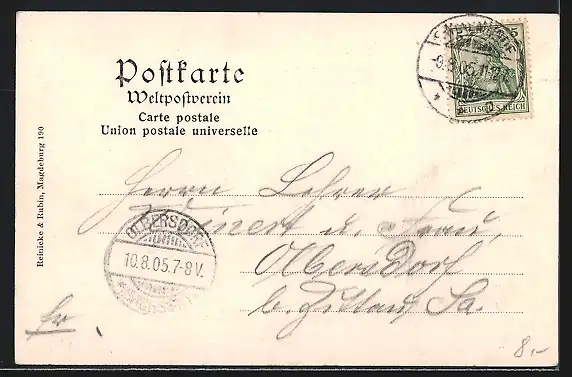 Postkarte
Weltpostverein
Carte postale
Union postale universelle
9.8.05.
DEUTSCHES REICH
Reinicke & Rubin, Magdeburg 190
Herrn Lehrer
u. Frau,
OLBERSDORF
10.8.05.7-8V.
Olbersdorf
b. Zittau, Sa.
Fr
8.-